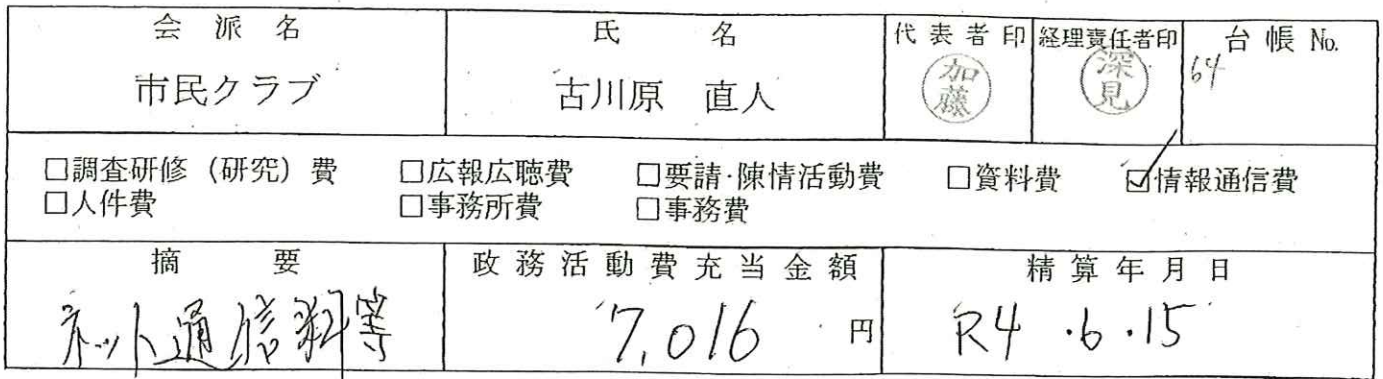 会派名 氏名 代表者印 経理責任者印 台帳 No.
市民クラブ 古川原 直人 加藤 深見 64
□調査研修（研究）費 □広報広聴費 □要請・陳情活動費 □資料費 ☑情報通信費
□人件費 □事務所費 □事務費
摘要 政務活動費充当金額 精算年月日
ネット通信料等 7,016 円 R4.6.15